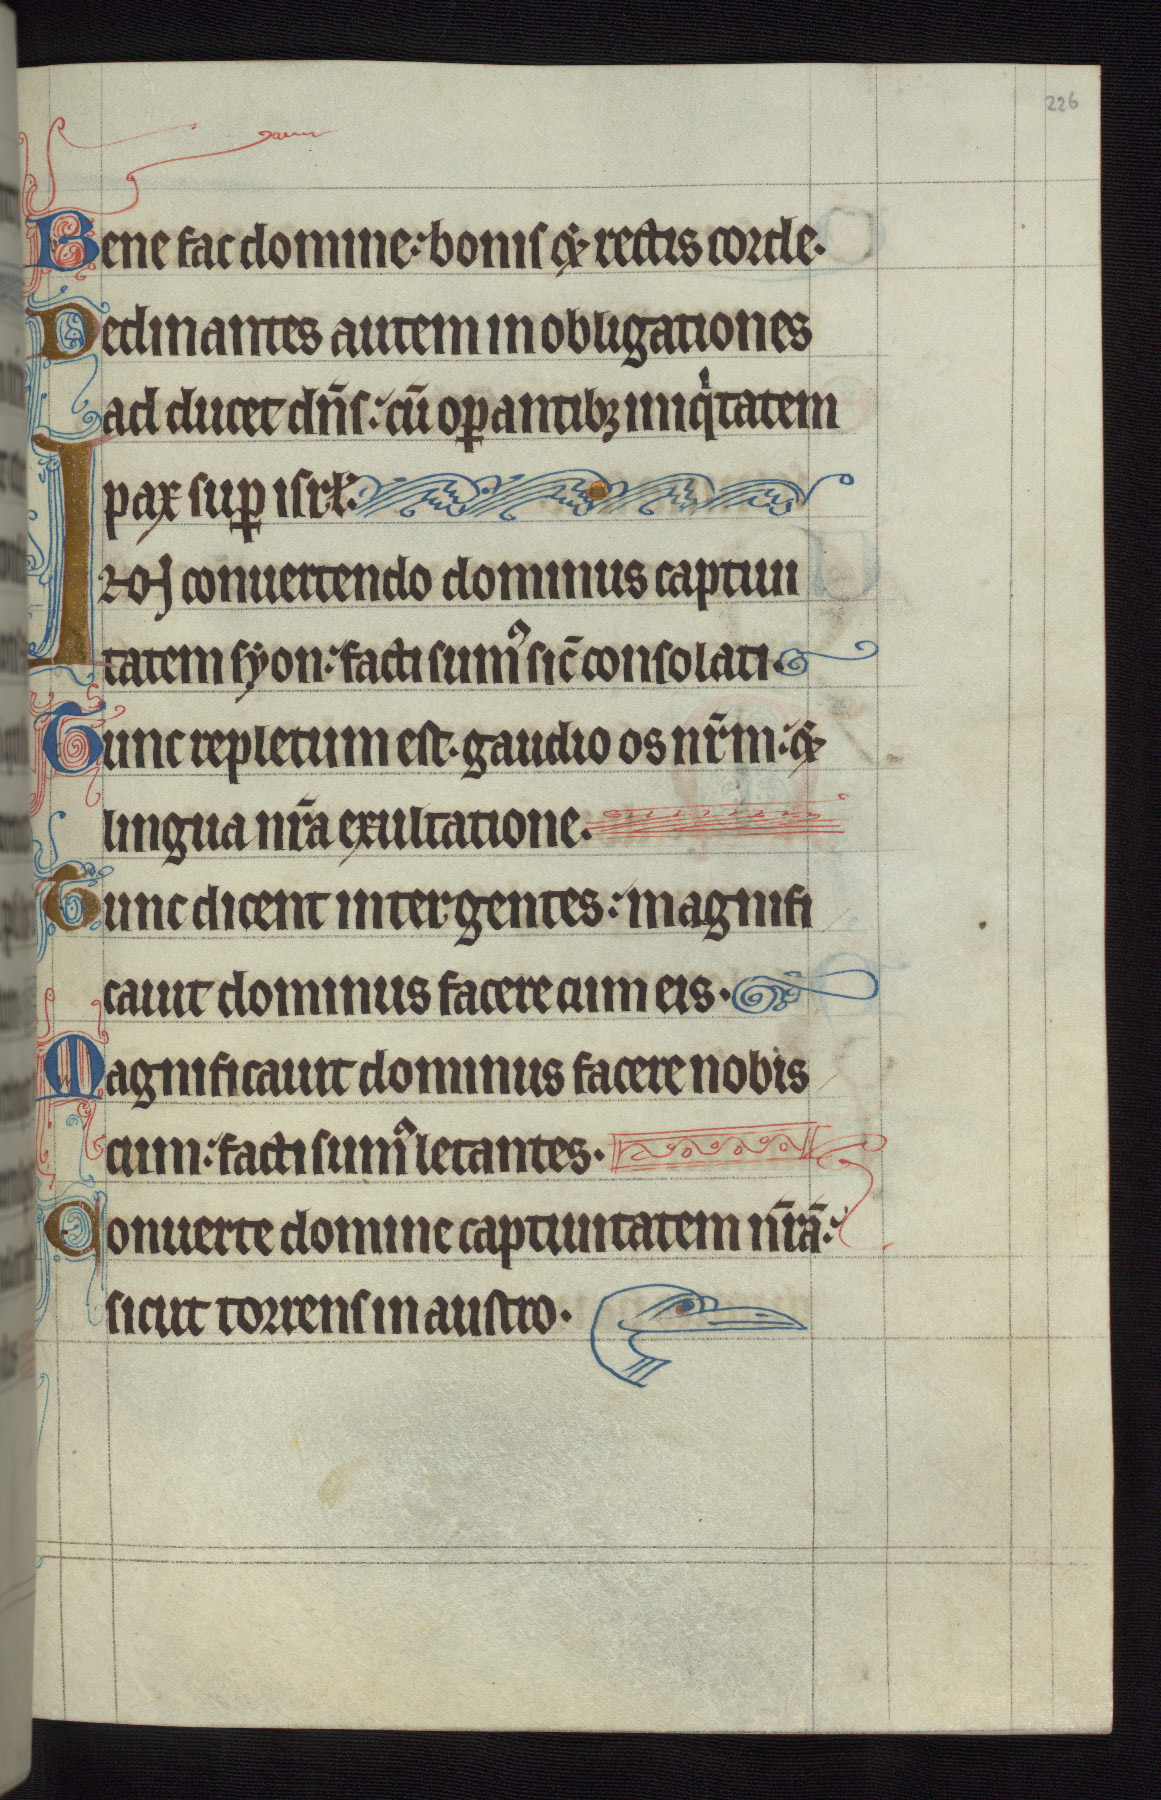 226
Bene fac domine: bonis & rectis corde.
Declinantes autem in obligationes
ad ducet dñs: cũ oꝑantibꝫ iniqͥtatem
pax suꝑ isrł.
In conuertendo dominus captiui
tatem syon: facti sumꝰ sic̄ consolati.
Tunc repletum est gaudio os nr̄m: &
lingua nr̄a exultatione.
Tunc dicent inter gentes: magnifi
cauit dominus facere cum eis.
Magnificauit dominus facere nobis
cum: facti sumꝰ letantes.
Conuerte domine captiuitatem nr̄ā:
sicut torrens in austro.